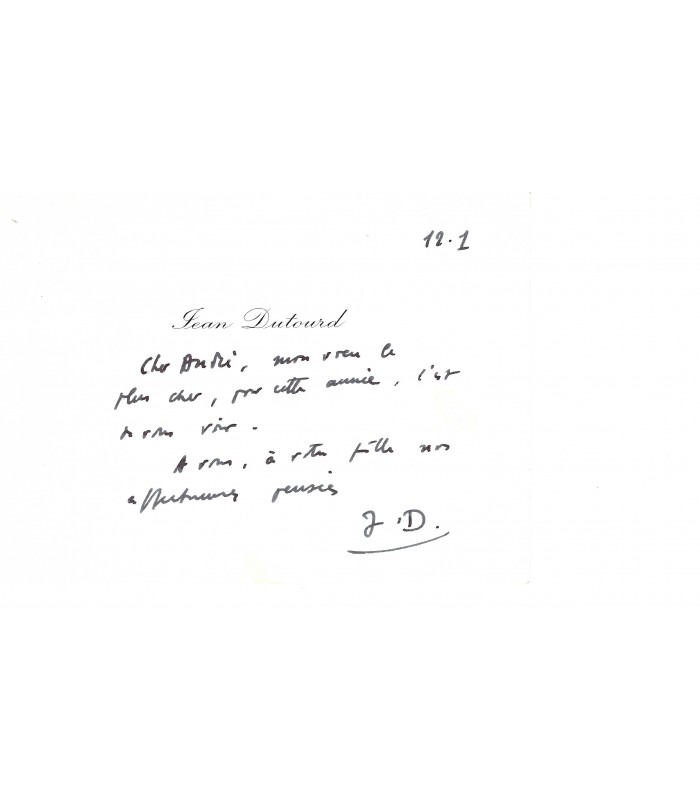 12.1
Jean Dutourd
Cher André, mon vœu le
plus cher, pour cette année, c'est
de vous voir.
A vous, à votre fille nos
affectueuses pensées
J.D.